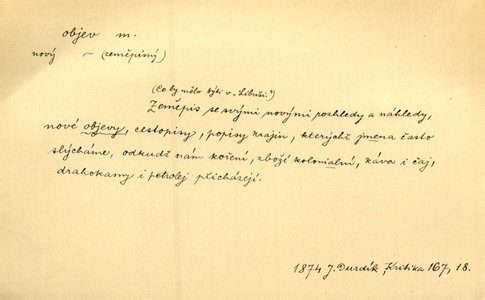 objev m.
nový ~ (zeměpisný)
(Co by mělo býti v „Libuši.“)
Zeměpis se svými novými rozhledy a náhledy,
nové objevy, cestopisy, popisy krajin, kterýchž jmena často
slýcháme, odkudž nám koření, zboží kolonialní, káva i čaj,
drahokamy i petrolej přicházejí.
1874 J. Durdík, Kritika 167, 18.